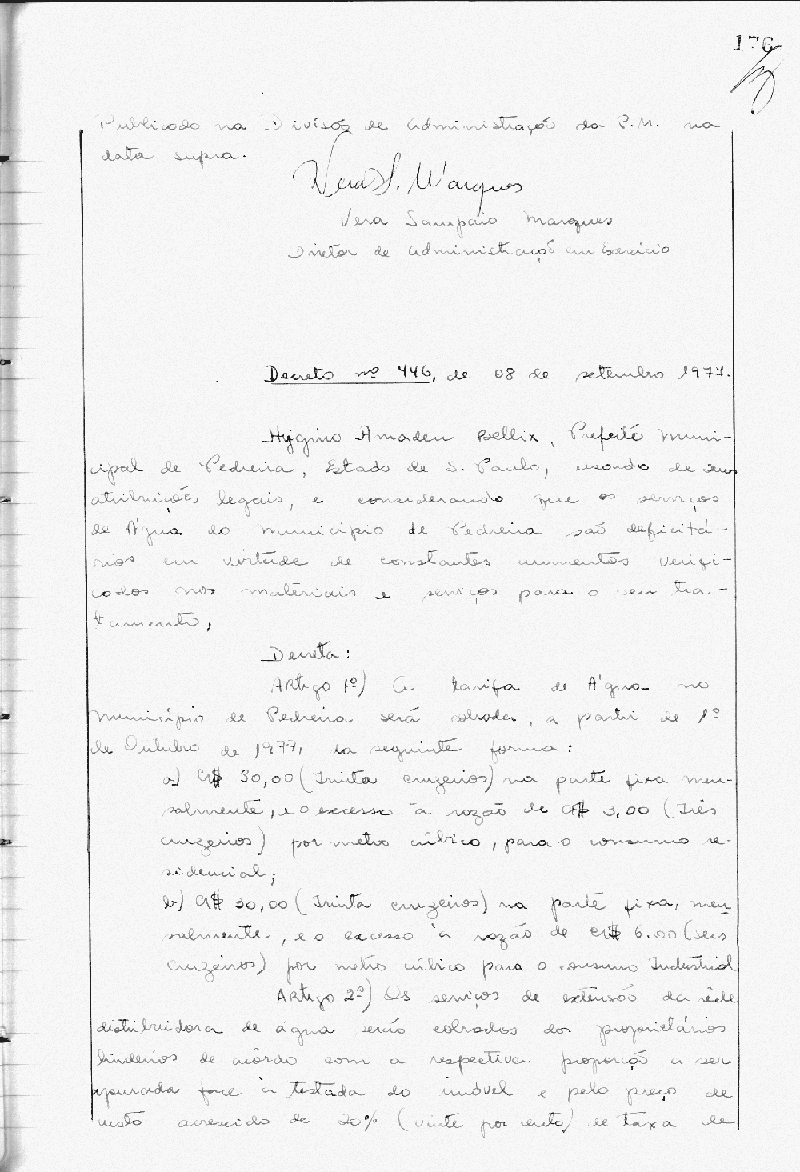 176
Publicado na Divisão de Administração da P.M. na
data supra.
Vera S. Marques
Vera Sampaio Marques
Diretor de Administração em Exercício
Decreto nº 446, de 08 de setembro 1977.
Hygino Amadeu Bellix, Prefeito Muni-
cipal de Pedreira, Estado de S. Paulo, usando de suas
atribuições legais, e considerando que os serviços
de Água do município de Pedreira são deficitá-
rios em virtude de constantes aumentos verifi-
cados nos materiais e serviços para o seu tra-
tamento,
Decreta:
Artigo 1º) A tarifa de Água no
município de Pedreira será cobrada, a partir de 1º
de Outubro de 1977, da seguinte forma:
a) CR$ 30,00 (Trinta cruzeiros) na parte fixa men-
salmente, e o excesso à razão de CR$ 3,00 (Três
cruzeiros) por metro cúbico, para o consumo re-
sidencial;
b) CR$ 30,00 (Trinta cruzeiros) na parte fixa, men-
salmente, e o excesso à razão de CR$ 6.00 (seis
cruzeiros) por metro cúbico para o consumo Industrial
Artigo 2º) Os serviços de extensão da rêde
distribuidora de água serão cobrados dos proprietários
lindeiros de acôrdo com a respectiva proporção a ser
apurada face à testada do imóvel e pelo preço de
custo acrescido de 20% (vinte por cento) de taxa de